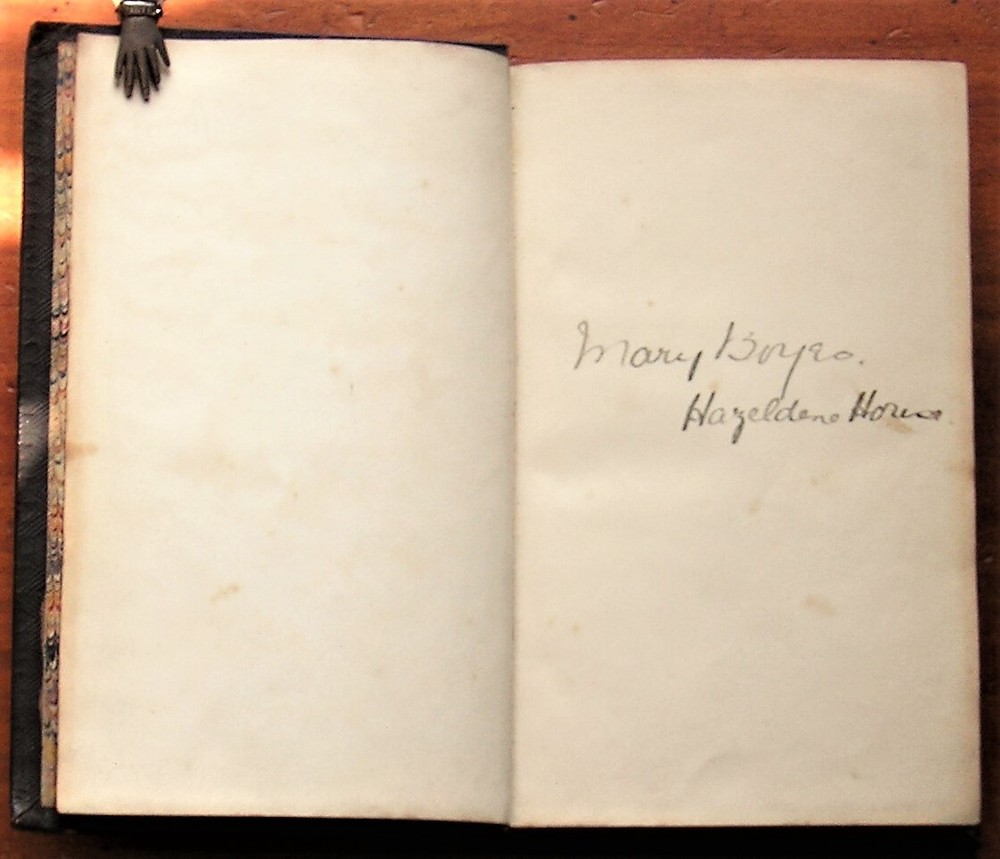 Mary Boyes.
Hazeldene House.